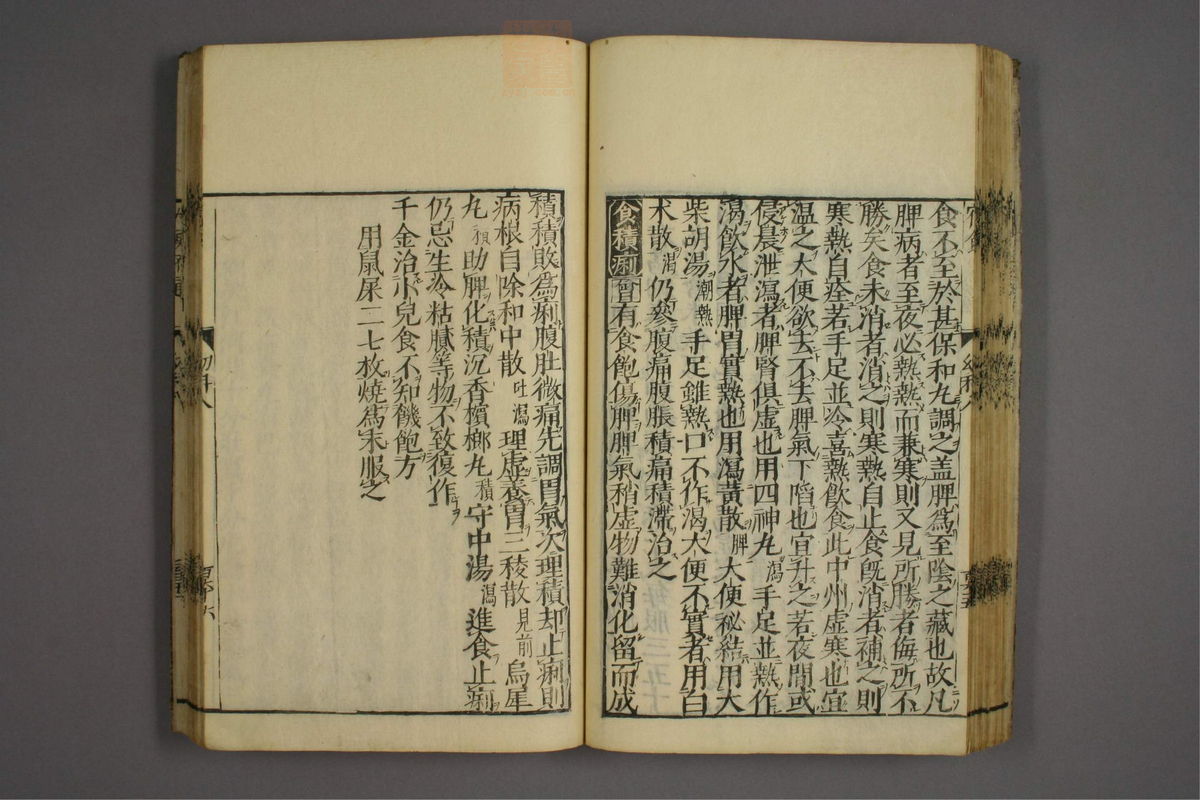 食不至於甚保和丸調之盖脾爲至陰之藏也故凡
脾病者至夜必熱熱而兼寒則又見所勝者侮所不
勝矣食未消者消之則寒熱自止食既消者補之則
寒熱自痊若手足並冷喜熱飲食此中州虛寒也宜
温之大便欲去不去脾氣下䧟也宜升之若夜間或
侵晨泄瀉者脾腎俱虛也用四神丸瀉手足並熱作
渴飲水者脾胃實熱也用瀉黃散脾大便秘結用大
柴胡湯潮熱手足雖熱口不作渴大便不實者用白
术散渴仍參腹痛腹脹積痛積滯治之
食積痢會有食飽傷脾脾氣稍虛物難消化留而成
積積敗爲痢腹肚微痛先調胃氣次理積却止痢則
病根自除和中散吐瀉理虛養胃三稜散見前烏犀
丸積助脾化積沉香檳榔丸積守中湯瀉進食止痢
仍忌生冷粘膩等物不致復作
千金治小兒食不知饑飽方
用鼠屎二七枚燒爲末服之